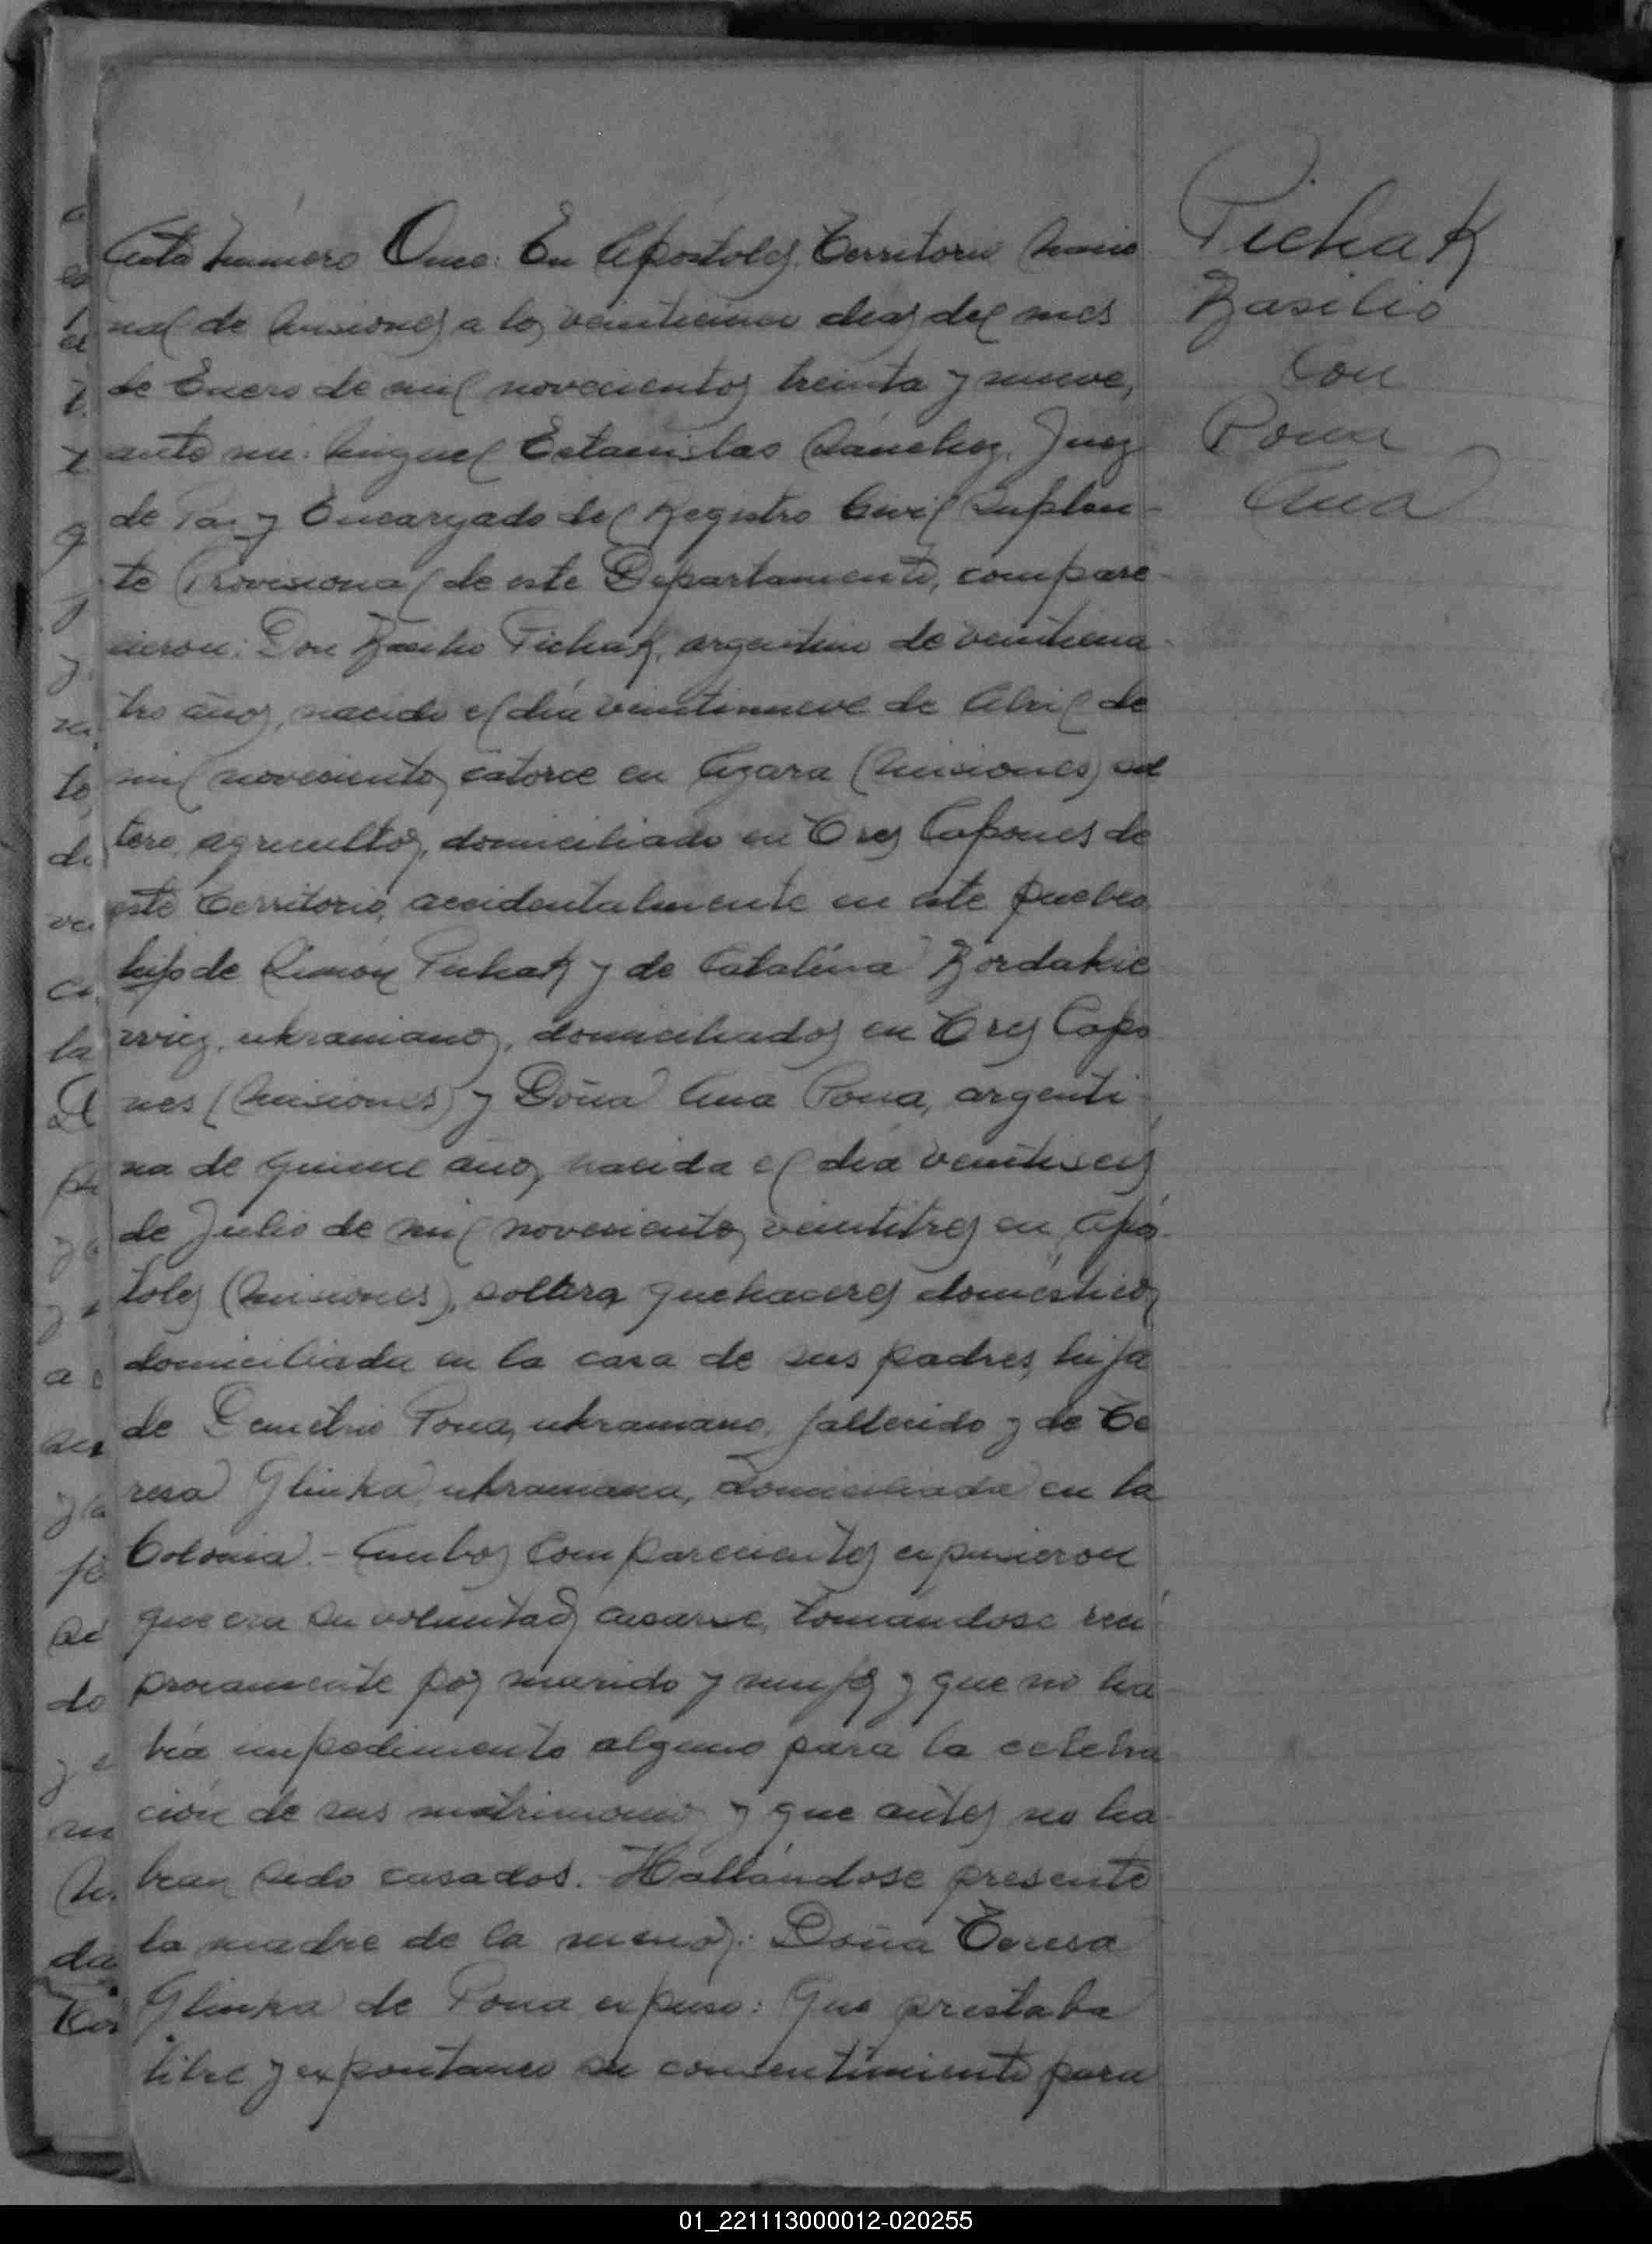 Acta número Once: En Apóstoles, Territorio Nacio
nal de Misiones, a los veinticinco dias del mes
de Enero de mil novecientos treinta y nueve,
ante mi: Miguel Estanislao Sánchez, Juez
de Paz y Encargado del Registro Civil Suplen-
te Provisional de este Departamento, compare-
cieron: Don Basilio Pichak, argentino de veinticua-
tro años, nacido el día veintinueve de Abril de
mil novecientos catorce en Azara (Misiones) sol
tero, agricultor, domiciliado en Tres Capones de
este Territorio, accidentalmente en este pueblo
hijo de Simón Pichak y de Catalina Bordakie
wicz, ukranianos, domiciliados en Tres Capo
nes (Misiones) y Doña Ana Pona, argenti-
na de quince años, nacida el dia veintiseis
de Julio de mil novecientos veintitres en Após-
toles (Misiones), soltera, quehaceres domésticos
domiciliada en la casa de sus padres, hija
de Demetrio Pona, ukraniano, fallecido y de Te
resa Glinka ukraniana, domiciliada en la
Colonia.- Ambos comparecientes expusieron
que era su voluntad casarse, tomandose recí
procamente por marido y mujer y que no ha-
bía impedimento alguno para la celebra-
ción de sus matrimonio y que antes no ha-
bian sido casados.- Hallándose presente
la madre de la menor: Doña Teresa
Glinka de Pona expuso: Que prestaba
libre y expontaneo su consentimiento para
Pichak
Basilio
con
Pona
Ana
01_221113000012-020255